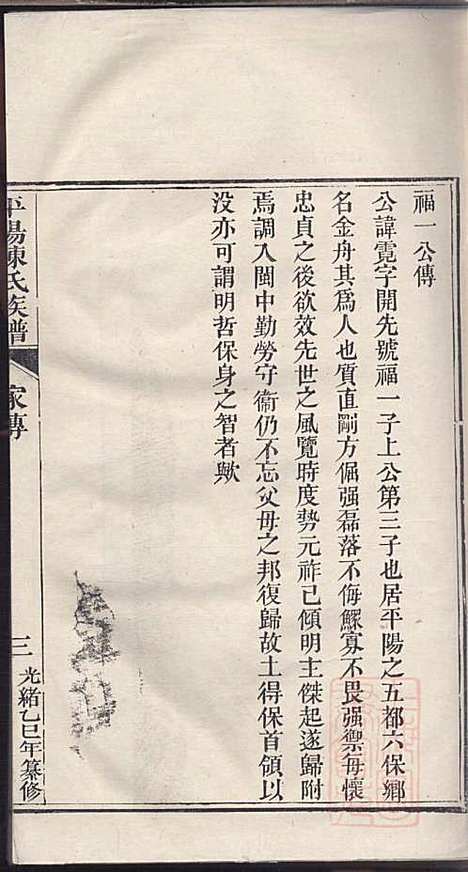 福一公傳
公諱霓字開先號福一子上公第三子也居平陽之五都六保鄉
名金舟其爲人也質直剛方倔强磊落不侮鰥寡不畏强禦每懷
忠貞之後欲效先世之風覽時度勢元祚已傾明主傑起遂歸附
焉調入閩中勤勞守衞仍不忘父母之邦復歸故土得保首領以
没亦可謂明哲保身之智者歟
平陽陳氏族譜
家傳
三
光緒乙巳年纂修